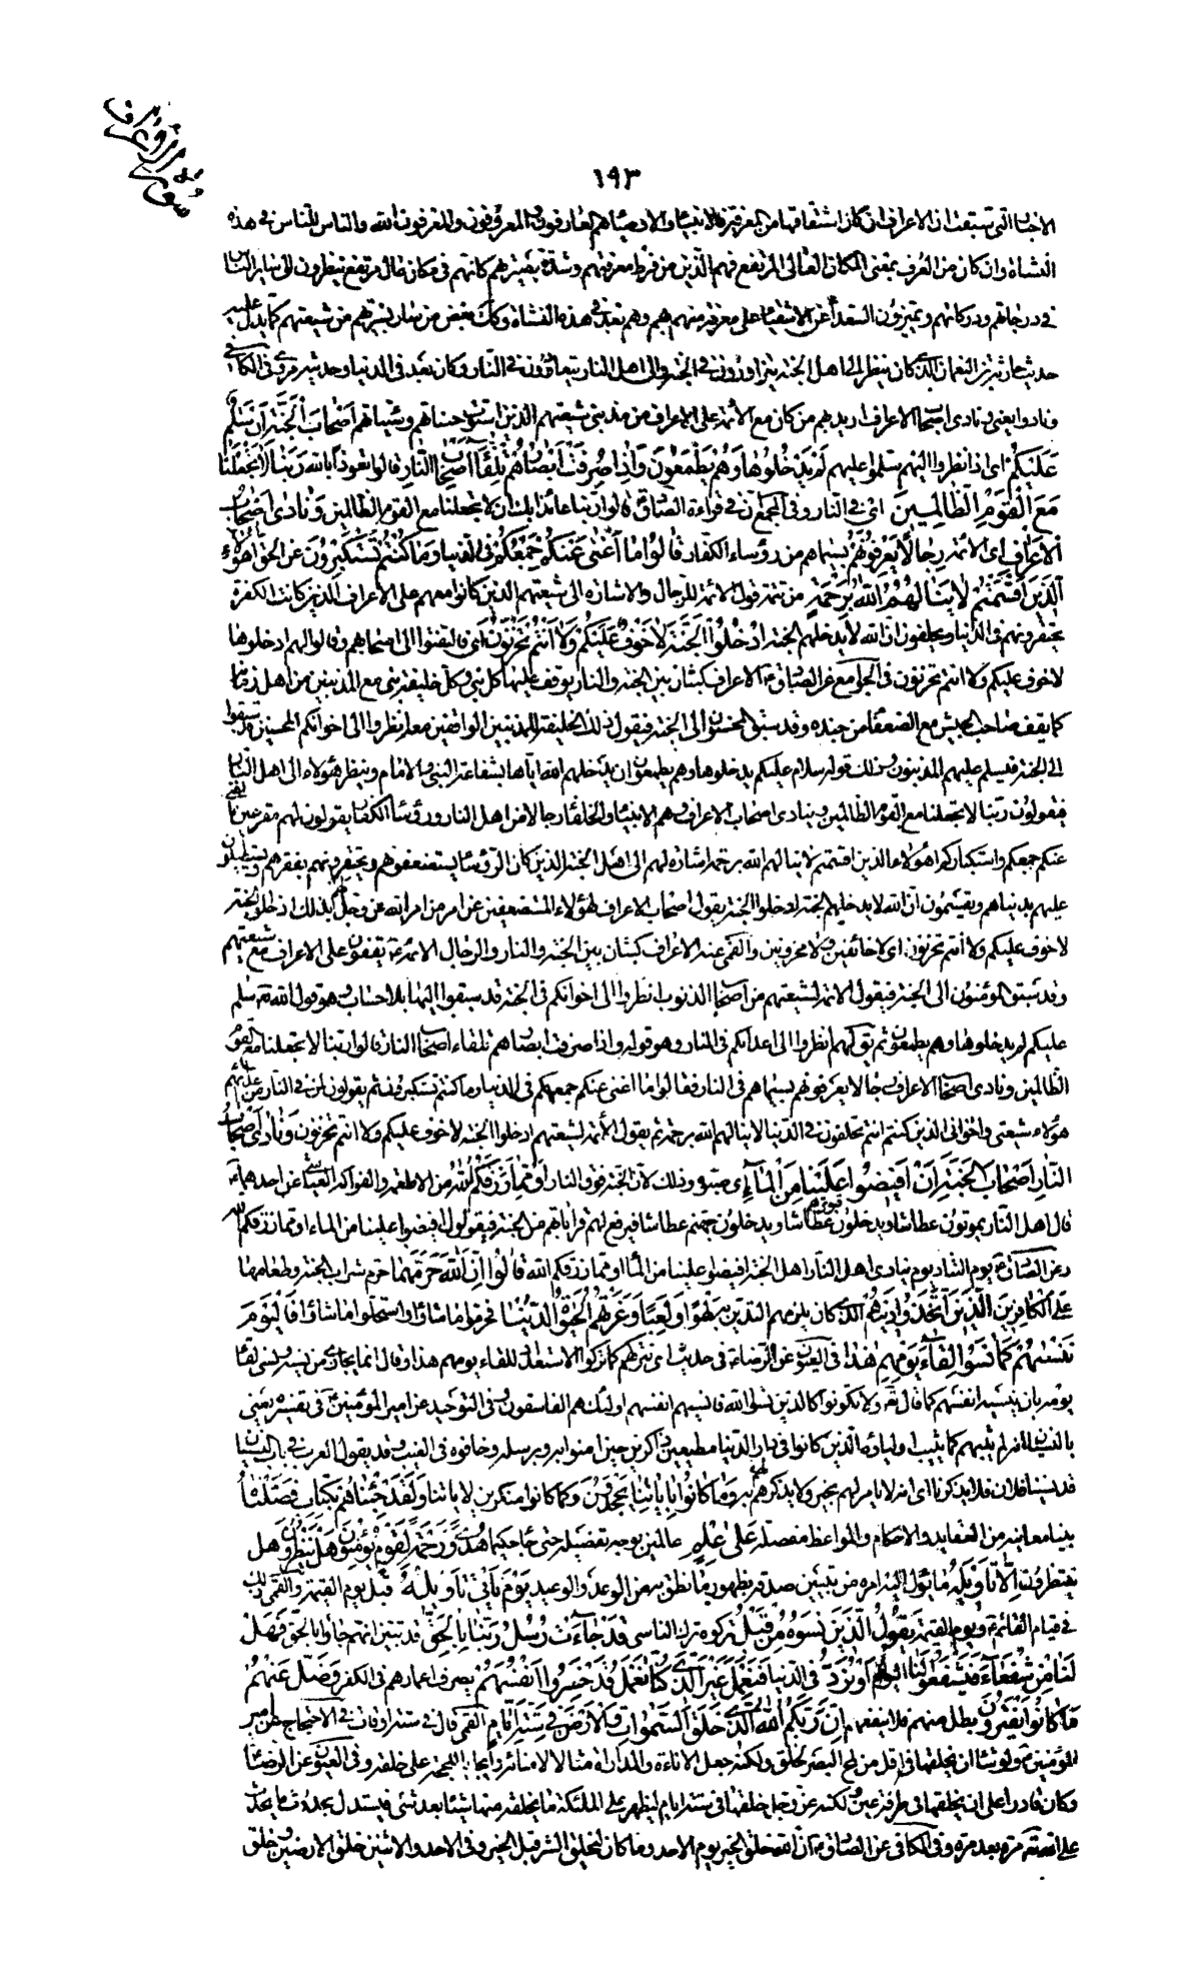 سورة الاعراف
١٩٣
الاخبار التي سبقت ان الاعراف ان كان اشتقاقها من المعرفة فالانبياء والاوصياء هم العارفون المعروفون والمعرفون الله والناس للناس في هذه
النشاة وان كان من العرف بمعنى المكان العالي المرتفع فهم الذين من فرط معرفتهم وشدة بصيرتهم كانهم في مكان عال مرتفع ينظرون الى سائر الناس
في درجاتهم ودركاتهم ويميزون السعداء عن الاشقياء على معرفة منهم بهم وهم بعد في هذه النشاة وكذلك بعض من سار بسيرتهم من شيعتهم كما يدل عليه
حديث حارثة بن النعمان الذي كان ينظر الى اهل الجنة يتزاورون في الجنة والى اهل النار يتعاوون في النار وكان بعد في الدنيا وحديثه مروي في الكافي
ونادوا يعني ونادى اصحاب الاعراف اريد بهم من كان مع الأئمة على الاعراف من مذنبي شيعتهم الذين استوت حسناتهم وسيئاتهم أصحاب الجنة أن سلام
عليكم اي اذا نظروا اليهم سلموا عليهم لم يدخلوها وهم يطمعون وإذا صرفت أبصارهم تلقاء أصحاب النار قالوا نعوذ بالله ربنا لا تجعلنا
مع القوم الظالمين اي في النار وفي المجمع في قراءة الصادق قالوا ربنا عائذا بك ان لا تجعلنا مع القوم الظالمين ونادى أصحاب
الاعراف اي الائمة رجالا يعرفونهم بسيماهم من رؤساء الكفار قالوا ما أغنى عنكم جمعكم في الدنيا وما كنتم تستكبرون عن الحق أهؤلاء
الذين أقسمتم لا ينالهم الله برحمة من تتمة قول الائمة للرجال والاشارة الى شيعتهم الذين كانوا معهم على الاعراف الذين كانت الكفرة
يحتقرونهم في الدنيا ويحلفون ان الله لا يدخلهم الجنة ادخلوا الجنة لا خوف عليكم ولا أنتم تحزنون اي فالتفتوا الى اصحابهم وقالوا لهم ادخلوها
لا خوف عليكم ولا انتم تحزنون في الجوامع عن الصادق الاعراف كثبان بين الجنة والنار يوقف عليها كل نبي وكل خليفة نبي مع المذنبين من اهل زمانه
كما يقف صاحب الجيش مع الضعفاء من جنده وقد سبق المحسنون الى الجنة فيقول ذلك الخليفة للمذنبين الواقفين معه انظروا الى اخوانكم المحسنين قد سبقوا
الى الجنة فيسلم عليهم المذنبون وذلك قوله سلام عليكم لم يدخلوها وهم يطمعون ان يدخلهم الله اياها بشفاعة النبي والامام وينظر هؤلاء الى اهل النار
فيقولون ربنا لا تجعلنا مع القوم الظالمين وينادى اصحاب الاعراف وهم الانبياء والخلفاء رجالا من اهل النار ورؤساء الكفار يقولون لهم مقرعين ما اغنى
عنكم جمعكم واستكباركم اهؤلاء الذين اقسمتم لا ينالهم الله برحمة اشارة لهم الى اهل الجنة الذين كان الرؤساء يستضعفونهم ويحتقرونهم بفقرهم ويستطيلون
عليهم بدنياهم ويقسمون ان الله لا يدخلهم الجنة ادخلوا الجنة يقول اصحاب الاعراف لهؤلاء المستضعفين عن امر من امر الله عز وجل لهم بذلك ادخلوا الجنة
لا خوف عليكم ولا انتم تحزنون اي لا خائفين ولا محزونين والقمي عنه الاعراف كثبان بين الجنة والنار والرجال الائمة يقفون على الاعراف مع شيعتهم
وقد سبق المؤمنون الى الجنة فيقول الائمة لشيعتهم من اصحاب الذنوب انظروا الى اخوانكم في الجنة قد سبقوا اليها بلا حساب وهو قول الله سلام
عليكم لم يدخلوها وهم يطمعون ثم يقال لهم انظروا الى اعدائكم في النار وهو قوله واذا صرفت ابصارهم تلقاء اصحاب النار قالوا ربنا لا تجعلنا مع القوم
الظالمين ونادى اصحاب الاعراف رجالا يعرفونهم بسيماهم في النار فقالوا ما اغنى عنكم جمعكم في الدنيا وما كنتم تستكبرون ثم يقولون لمن في النار من اعدائهم
هؤلاء شيعتي واخواني الذين كنتم انتم تحلفون في الدنيا لا ينالهم الله برحمة ثم يقول الأئمة لشيعتهم ادخلوا الجنة لا خوف عليكم ولا انتم تحزنون ونادى أصحاب
النار أصحاب الجنة أن أفيضوا علينا من الماء اي صبوه وذلك لان الجنة فوق النار أو مما رزقكم الله من الاطعمة والفواكه العياشي عن احدهما
قال اهل النار يموتون عطاشا ويدخلون قبورهم عطاشا ويدخلون جهنم عطاشا فيرفع لهم قراباتهم من الجنة فيقولون افيضوا علينا من الماء او مما رزقكم الله
وعن الصادق يوم التناد يوم ينادى اهل النار اهل الجنة افيضوا علينا من الماء او مما رزقكم الله قالوا إن الله حرمهما حرم شراب الجنة وطعامها
على الكافرين الذين اتخذوا دينهم الذي كان يلزمهم التدين به لهوا ولعبا وغرتهم الحيوة الدنيا فحرموا ما شاؤا واستحلوا ما شاؤا فاليوم
ننساهم كما نسوا لقاء يومهم هذا في العيون عن الرضا في حديث اي نتركهم كما تركوا الاستعداد للقاء يومهم هذا وقال انما يجازي من نسيه ونسي لقاء
يومه بان ينسيهم انفسهم كما قال ولا تكونوا كالذين نسوا الله فانسيهم انفسهم اولئك هم الفاسقون وفي التوحيد عن امير المؤمنين في تفسيره يعني
بالنسيان انه لم يثبهم كما يثيب اولياءه الذين كانوا في دار الدنيا مطيعين ذاكرين حين امنوا به وبرسله وخافوه في الغيب وقد يقول العرب في باب النسيان
قد نسينا فلان فلا يذكرنا اى انه لا يامر لهم بخير ولا يذكرهم به وما كانوا بآياتنا يجحدون وكما كانوا منكرين لاياتنا ولقد جئناهم بكتاب فصلناه
بينا معانيه من العقايد والاحكام والمواعظ مفصلة على علم عالمين بوجه تفصيله حتى جاء حكيما هدى ورحمة لقوم يؤمنون هل ينظرون هل
ينتظرون إلا تأويله ما يؤل اليه امره من تبيين صدقه بظهور ما نطق به من الوعد والوعيد يوم يأتي تأويله قيل يوم القيمة والقمي ذلك
في قيام القائم ويوم القيمة يقول الذين نسوه من قبل تركوه ترك الناسي قد جاءت رسل ربنا بالحق قد تبين انهم جاؤا بالحق فهل
لنا من شفعاء فيشفعوا لنا اليوم أو نرد في الدنيا فنعمل غير الذي كنا نعمل قد خسروا أنفسهم بصرف اعمارهم في الكفر وضل عنهم
ما كانوا يفترون بطل منهم فلا ينفعهم إن ربكم الله الذي خلق السموات والأرض في ستة أيام القمي قال في ستة اوقات في الاحتجاج عن امير
المؤمنين ولو شاء ان يخلقها في اقل من لمح البصر لخلق ولكنه جعل الاناءة والمداراة مثالا لامنائه وايجابا للحجة على خلقه وفي العيون عن الرضا
وكان قادرا على ان يخلقها في طرفة عين ولكنه عز وجل خلقها في ستة ايام ليظهر على الملئكة ما يخلقه منها شيئا بعد شيء فيستدل بحدوث ما يحدث
على الله مرة بعد مرة وفي الكافي عن الصادق ان الله خلق الخير يوم الاحد وما كان ليخلق الشر قبل الخير وفي الاحد والاثنين خلق الارضين وخلق